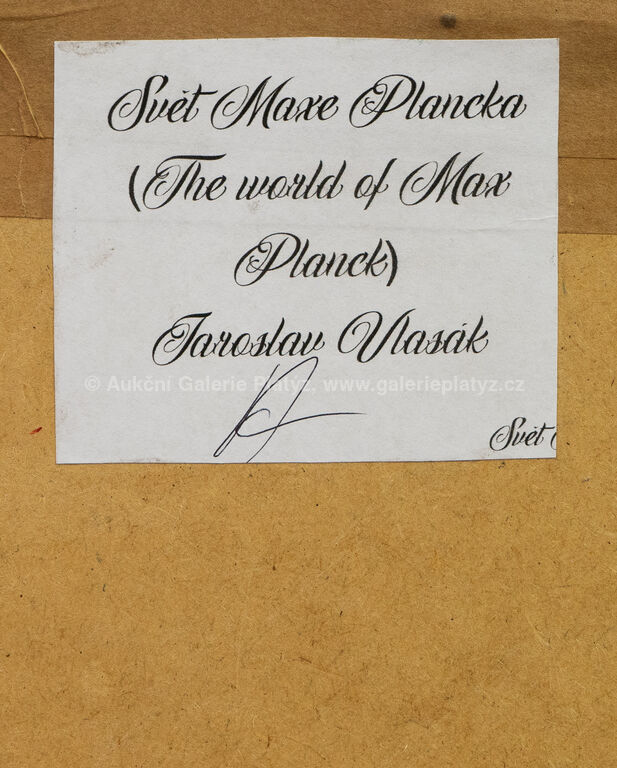 Svět Maxe Plancka
(The world of Max
Planck)
Jaroslav Vlasák
© Aukční Galerie Platýz, www.galerieplatyz.cz
Svět